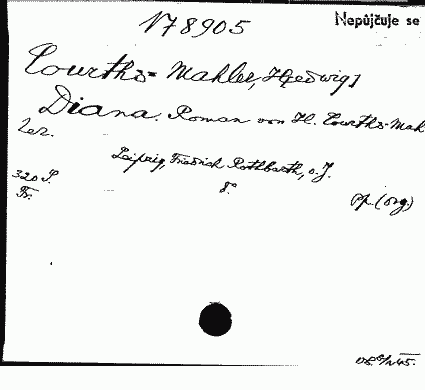 178905
Nepůjčuje se
Courths=Mahler, H[edwig]
Diana. Roman von H. Courths-Mah
ler.
Leipzig, Friedrich Rothbarth, o. J.
320 S. 8°
Fr. Pp. (org.)